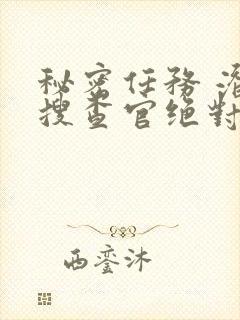 秘密任務
搜查官绝對
西銮沐